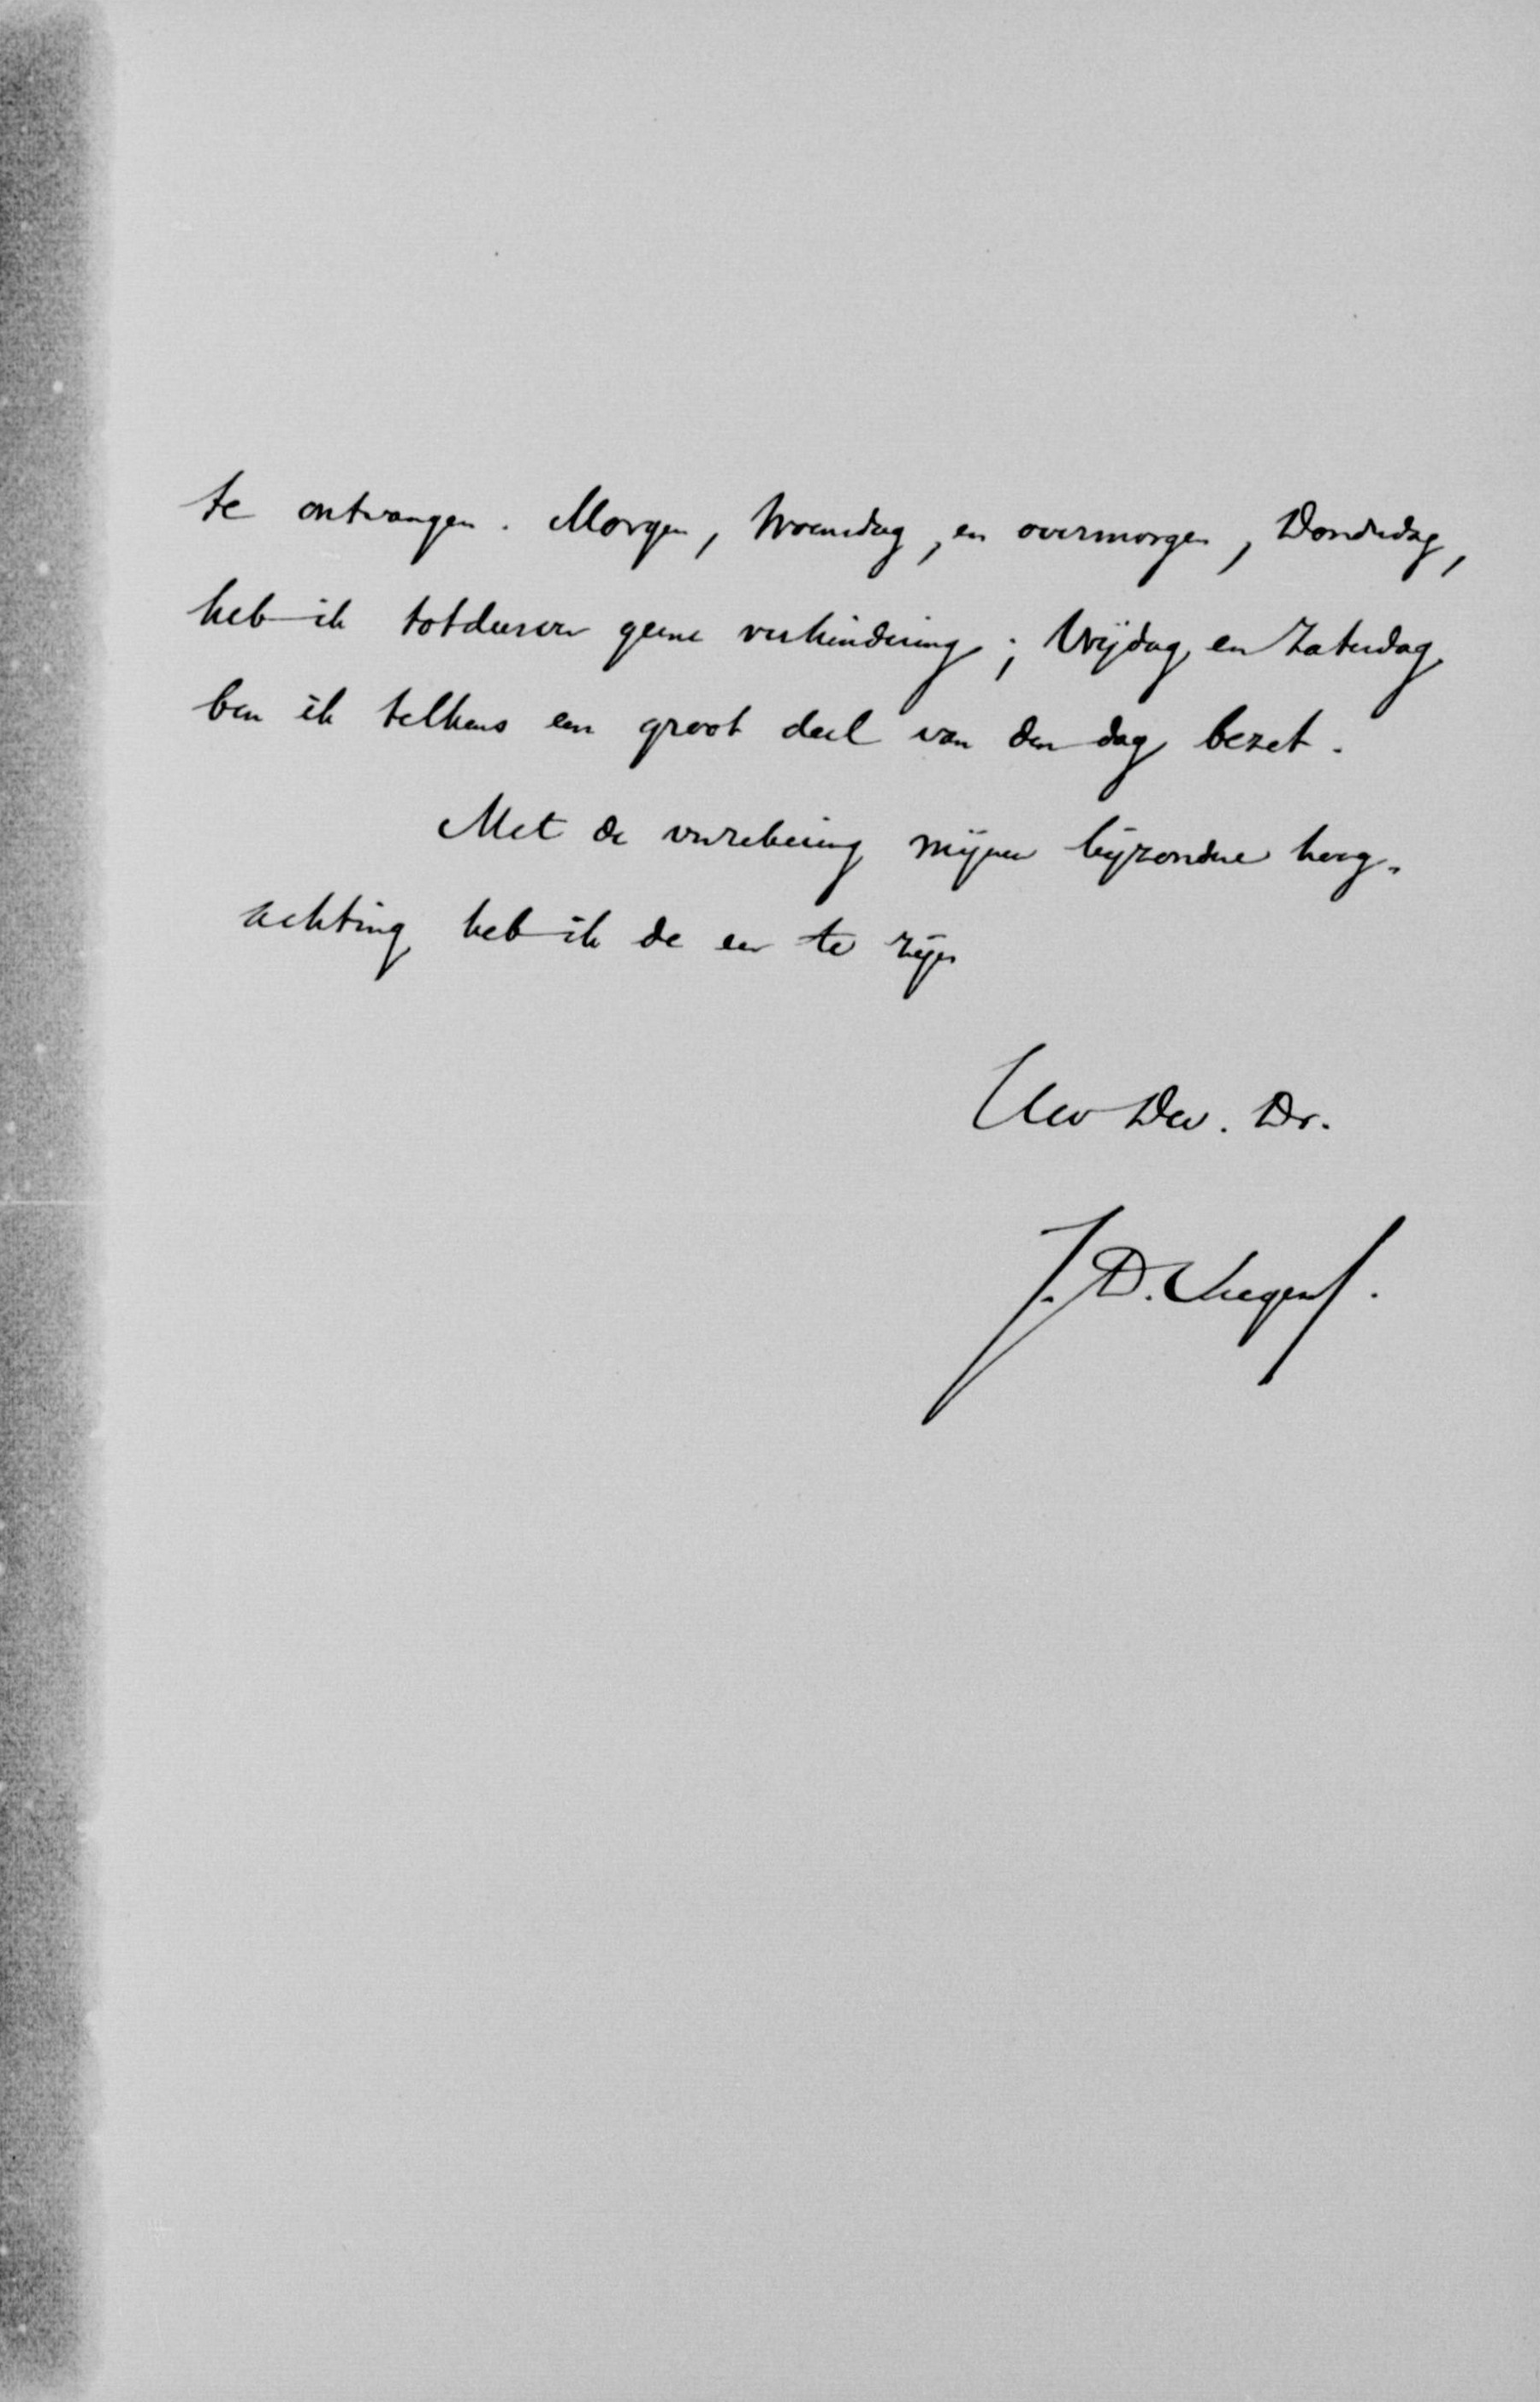 te ontvangen. Morgen, Woensdag, en overmorgen, Donderdag,
heb ik totdusver geene verhindering; Vrijdag en Zaterdag
ben ik telkens een groot deel van den dag bezet.
Met de verzekering mijner bijzondere hoog-
achting heb ik de eer te zijn
Uw Dw. Dr.
J. D. Veegens.